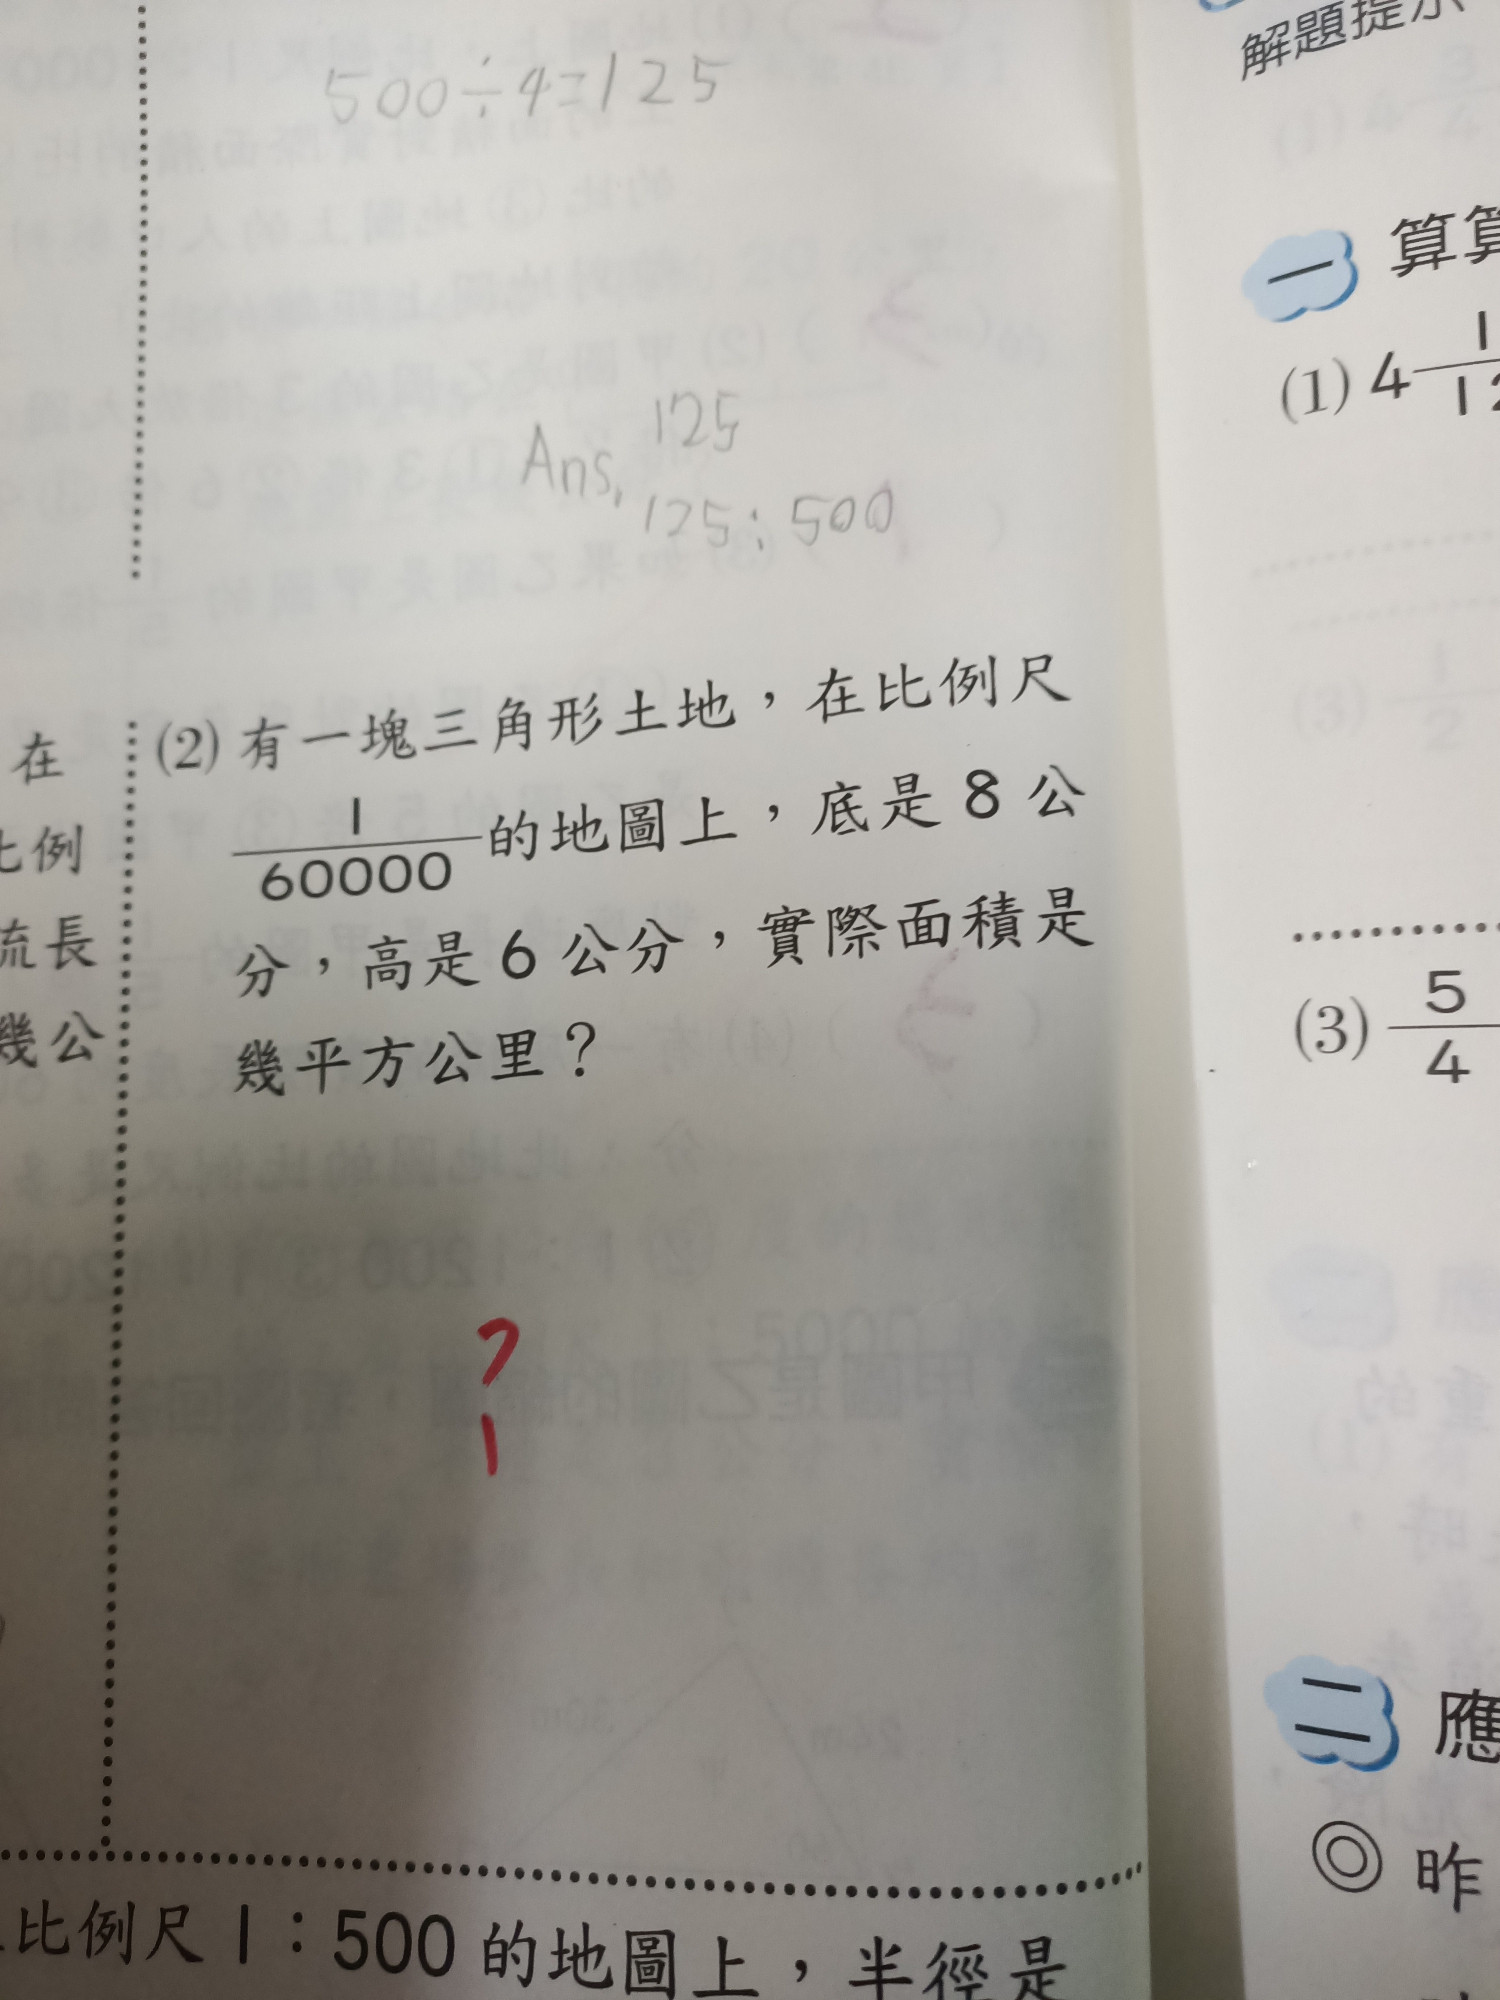 500÷4=125
Ans. 125
125:500
(2)有一塊三角形土地，在比例尺
1/60000的地圖上，底是8公
分，高是6公分，實際面積是
幾平方公里？
?
在
比例
流長
幾公
比例尺1：500的地圖上，半徑是
解題提示
一 算算
(1) 4 1/12
(3) 5/4
二 應
◎昨